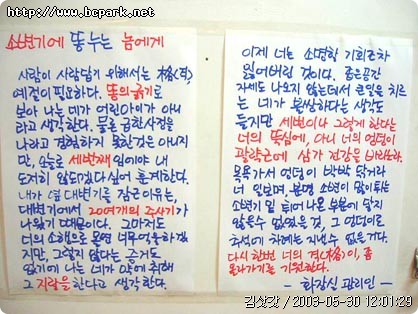 http://www.bcpark.net
소변기에 똥누는 놈에게
사람이 사람답기 위해서는 格(격),
예절이 필요하다. 똥의 굵기로
보아 너는 네가 어린아이가 아니
라고 생각한다. 물론 급한사정을
나라고 경험하지 못한것은 아니지
만, 오늘로 세번째 임에야 내
도저히 않되겠다 싶어 훈계한다.
내가 옆 대변기를 잠근이유는,
대변기에서 20여개의 주사기가
나왔기 때문이다. 그마저도
너의 소행으로 몬다면 너무 억울하겠
지만, 그렇지 않다는 증거도
없기에 나는 네가 약에 취해
그 지랄을 한다고 생각한다.
이제 너는 소명할 기회조차
잃어버린 것이다. 좁은공간
자세도 나오지 않는데서 큰일을 치르
는 네가 불쌍하다는 생각도
들지만 세번이나 그렇게 한다는
너의 뚝심에, 아니 너의 엉덩이
괄약근에 삼가 건강을 바라노라.
목욕가서 엉덩이 박박 닦거라
너 일보며, 분명 소변이 많이 튀는
소변기 밑 튀어나온 부분에 닿지
않을수 없었을 것, 그 엉덩이로
추석에 차례는 지낼수 없을거다.
다시 한번 너의 격(格)이, 좀
올라가기를 기원한다.
- 화장실 관리인 -
김삿갓 / 2003-05-30 12:01:29